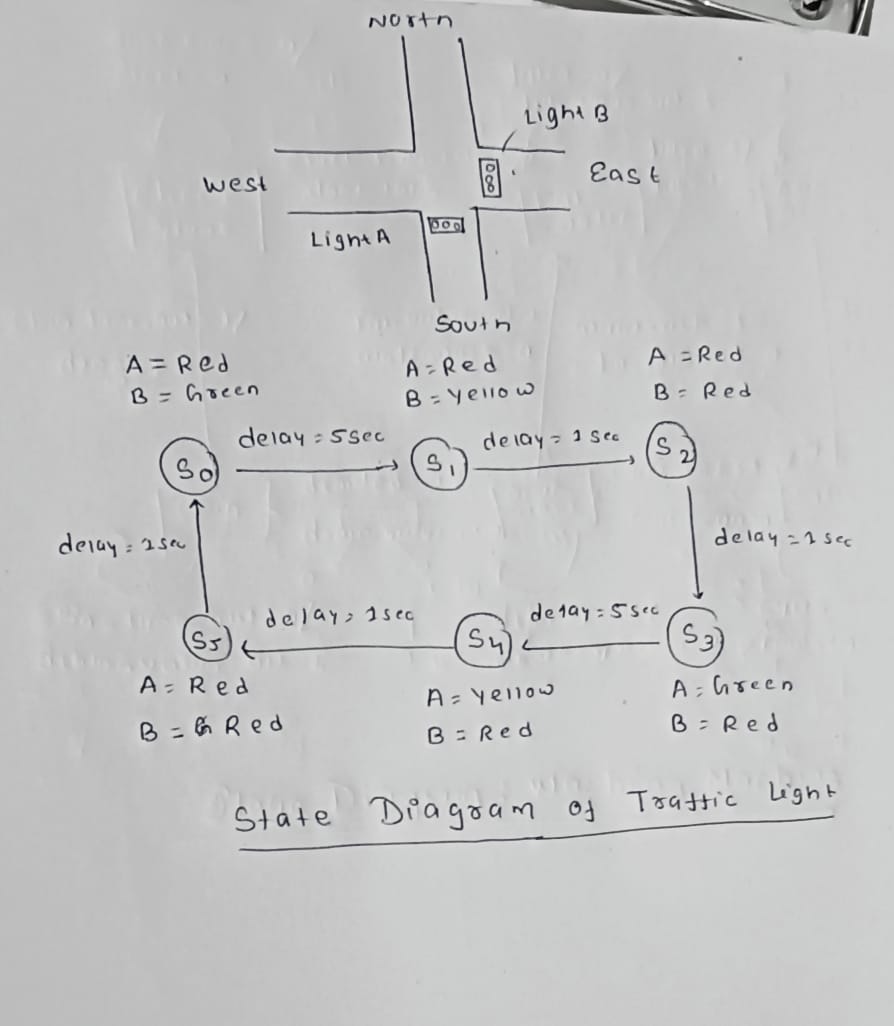 North
Light B
West
East
Light A
South
A = Red
B = Green
A = Red
B = Yellow
A = Red
B = Red
S0
delay = 5sec
S1
delay = 1 sec
S2
delay = 1sec
delay = 1 sec
S5
delay = 1sec
S4
delay = 5sec
S3
A = Red
B = Red
A = Yellow
B = Red
A = Green
B = Red
State Diagram of Traffic Light